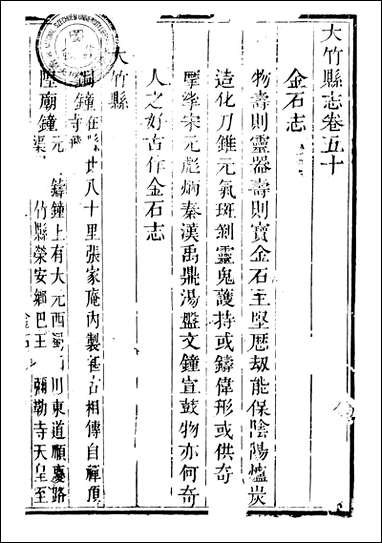 大竹縣志卷五十
金石志
物壽則靈器壽則寶金石主堅歷劫能保陰陽爐炭
造化刀錐元氣斑剝靈鬼護持或鑄偉形或供奇
摩挲宋元彪炳秦漢禹鼎湯盤文鐘宣鼓物亦何奇
人之好古作金石志
大竹縣
銅鐘在縣廿八十里張家庵內製甚古相傳自禪頂
寺飛
墜廟鐘元鑄鐘上有大元西蜀川東道順慶路
渠竹縣榮安鄉巴王彌勒寺天皇至
金石